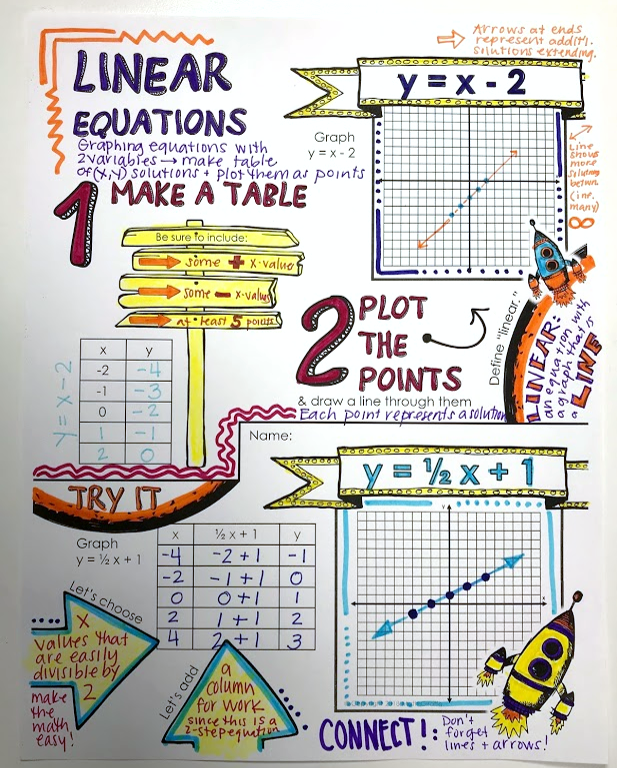 Arrows at ends
represent addit'l.
solutions extending.
LINEAR
EQUATIONS
y = x - 2
Graphing equations with
2 variables → make table
of (x,y) solutions + plot them as points
Graph
y = x - 2
Line
shows
more
solutions
betwn.
(inf.
many)
∞
1 MAKE A TABLE
Be sure to include:
some + x-values
some - x-values
at least 5 points
2 PLOT
THE
POINTS
& draw a line through them
Each point represents a solution
Define "linear."
LINEAR:
an equation with
a graph that is
a LINE
y = x - 2
x y
-2 -4
-1 -3
0 -2
1 -1
2 0
Name:
y = ½ x + 1
TRY IT
Graph
y = ½ x + 1
x ½ x + 1 y
-4 -2 + 1 -1
-2 -1 + 1 0
0 0 + 1 1
2 1 + 1 2
4 2 + 1 3
y
x
Let's choose
x
values that
are easily
divisible by
2
make
the
math
easy!
Let's add
a
column
for work
since this is a
2-step equation
CONNECT!:
Don't
forget
lines + arrows!